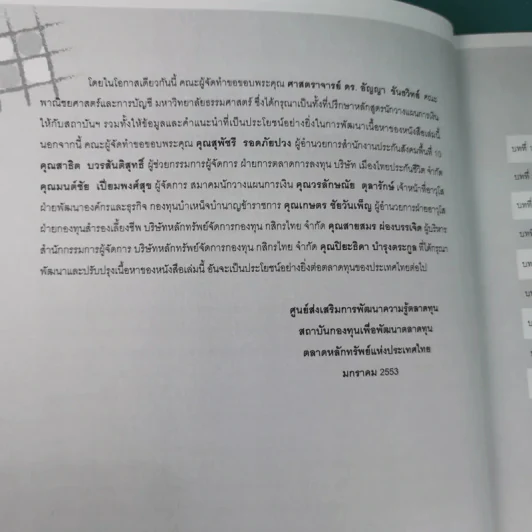 โดยในโอกาสเดียวกันนี้ คณะผู้จัดทำขอขอบพระคุณ ศาสตราจารย์ ดร. อัญญา ขันธวิทย์ คณะ
พาณิชยศาสตร์และการบัญชี มหาวิทยาลัยธรรมศาสตร์ ซึ่งได้กรุณาเป็นทั้งที่ปรึกษาหลักสูตรนักวางแผนการเงิน
ให้กับสถาบันฯ รวมทั้งให้ข้อมูลและคำแนะนำที่เป็นประโยชน์อย่างยิ่งในการพัฒนาเนื้อหาของหนังสือเล่มนี้
นอกจากนี้ คณะผู้จัดทำขอขอบพระคุณ คุณสุพัชรี รอดภัยปวง ผู้อำนวยการสำนักงานประกันสังคมพื้นที่ 10
คุณสาธิต บวรสันติสุทธิ์ ผู้ช่วยกรรมการผู้จัดการ ฝ่ายการตลาดการลงทุน บริษัท เมืองไทยประกันชีวิต จำกัด
คุณมนต์ชัย เปี่ยมพงศ์สุข ผู้จัดการ สมาคมนักวางแผนการเงิน คุณวรลักษณัย ตุลารักษ์ เจ้าหน้าที่อาวุโส
ฝ่ายพัฒนาองค์กรและธุรกิจ กองทุนบำเหน็จบำนาญข้าราชการ คุณเกษตร ชัยวันเพ็ญ ผู้อำนวยการฝ่ายอาวุโส
ฝ่ายกองทุนสำรองเลี้ยงชีพ บริษัทหลักทรัพย์จัดการกองทุน กสิกรไทย จำกัด คุณสายสมร ผ่องบรรเจิด ผู้บริหาร
สำนักกรรมการผู้จัดการ บริษัทหลักทรัพย์จัดการกองทุน กสิกรไทย จำกัด คุณปิยะธิดา บำรุงตระกูล ที่ได้กรุณา
พัฒนาและปรับปรุงเนื้อหาของหนังสือเล่มนี้ อันจะเป็นประโยชน์อย่างยิ่งต่อตลาดทุนของประเทศไทยต่อไป
ศูนย์ส่งเสริมการพัฒนาความรู้ตลาดทุน
สถาบันกองทุนเพื่อพัฒนาตลาดทุน
ตลาดหลักทรัพย์แห่งประเทศไทย
มกราคม 2553
บทที่
บทที่
บทที่